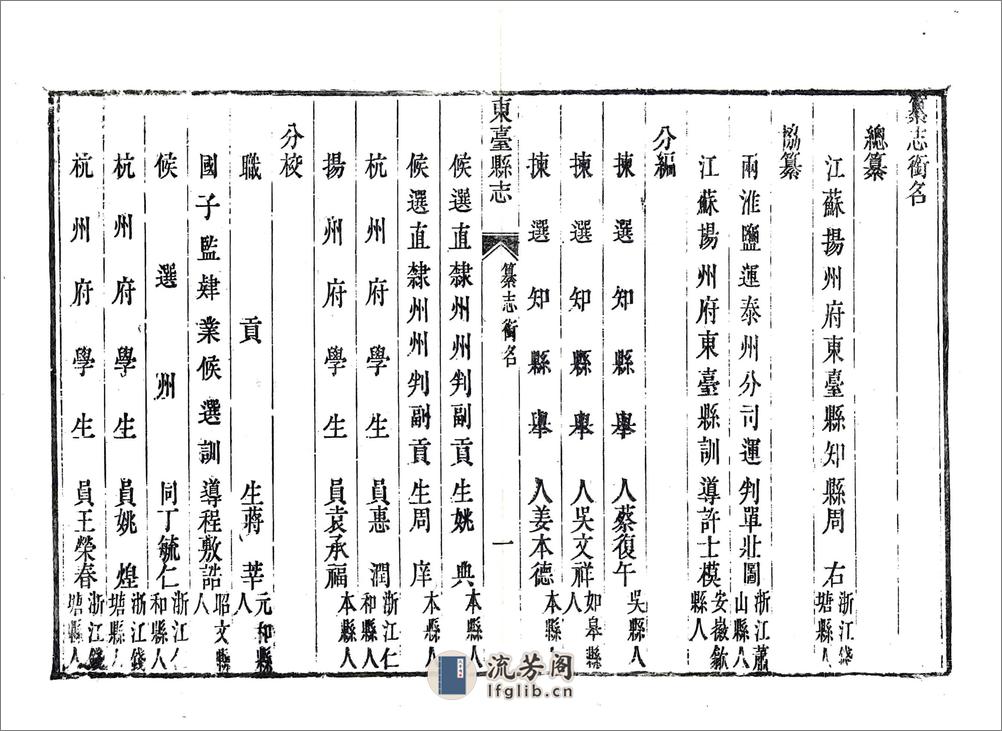 纂志銜名
總纂
江蘇揚州府東臺縣知縣周右浙江錢塘縣人
協纂
兩淮鹽運泰州分司運判單壯圖浙江蕭山縣人
江蘇揚州府東臺縣訓導許士模安徽歙縣人
分編
揀選知縣舉人蔡復午吳縣人
揀選知縣舉人吳文祥如皋縣人
揀選知縣舉人姜本德本縣人
東臺縣志
纂志銜名
一
候選直隸州州判副貢生姚典本縣人
候選直隸州州判副貢生周庠本縣人
杭州府學生員惠潤浙江仁和縣人
揚州府學生員袁承福本縣人
分校
職貢生蔣莘元和縣人
國子監肄業候選訓導程敷誥昭文縣人
候選州同丁毓仁浙江仁和縣人
杭州府學生員姚煌浙江錢塘縣人
杭州府學生員王榮春浙江錢塘縣人
流芳阁
lfglib.cn